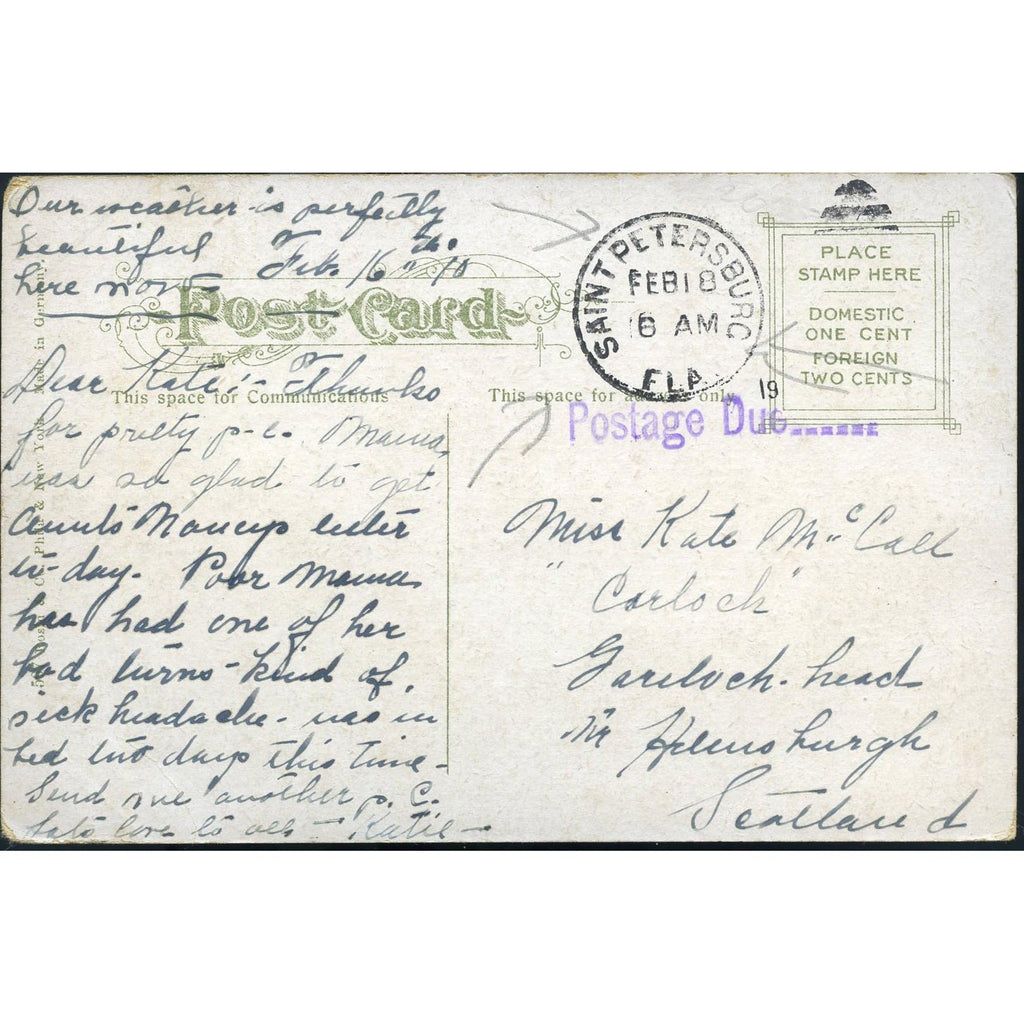 Our weather is perfectly
beautiful
here now
Feb. 16th 10
Post Card
This space for Communications
This space for address only
Dear Kate :- Thanks
for pretty p-c. Mama
was so glad to get
Aunts Nancys letter
to-day. Poor Mama
has had one of her
bad turns - kind of
sick headache - was in
bed two days this time -
Send me another p. c.
love to all - Katie -
SAINT PETERSBURG
FEB 18
6 AM
FLA.
19
Postage Due
PLACE
STAMP HERE
DOMESTIC
ONE CENT
FOREIGN
TWO CENTS
Miss Kate McCall
"Corloch"
Gareloch-head
Nr Helensburgh
Scotland
Phila & New York. Made in Germany.